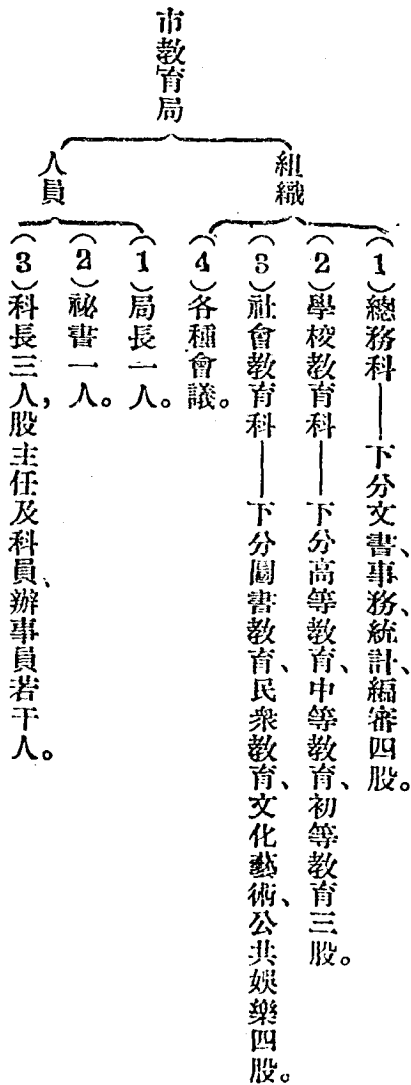 市教育局
組織
(1)總務科——下分文書、事務、統計、編審四股。
(2)學校教育科——下分高等教育、中等教育、初等教育三股。
(3)社會教育科——下分圖書教育、民衆教育、文化藝術、公共娛樂四股。
(4)各種會議。
人員
(1)局長一人。
(2)祕書一人。
(3)科長三人,股主任及科員、辦事員若干人。